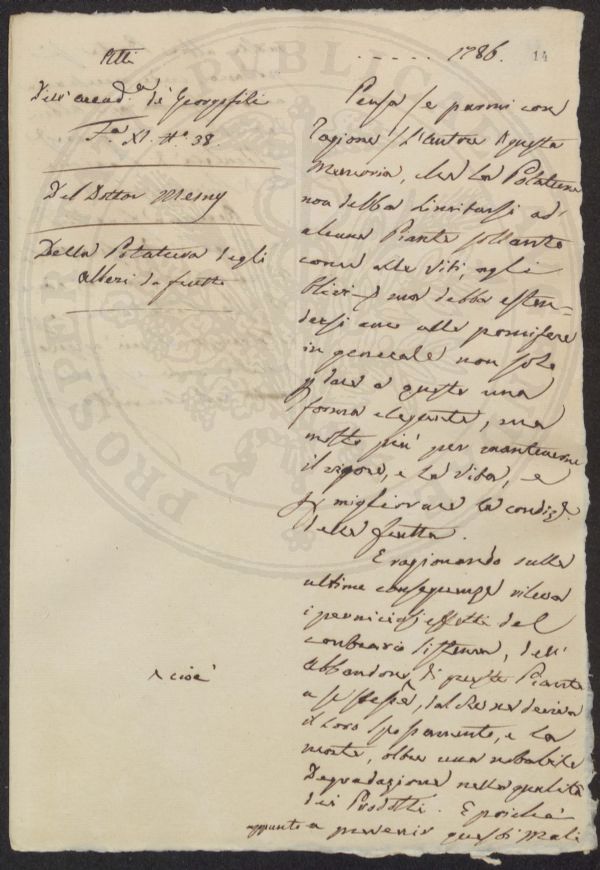 Atti
Dell'accad.a de' Georgofili
F.a XI. N.o 38.
Del Dottor Mesny
Della Potatura degli
alberi da frutto
. . . . . 1786.
14
Pensa se parmi con
ragione l'Autore di questa
Memoria, che la Potatura
non debba limitarsi ad
alcune Piante soltanto
come alle Viti, agli
Olivi, ma debba esten-
dersi anco alle pomifere
in generale non solo
p dare a queste una
forma elegante, ma
molto più per mantenerne
il vigore, e la vita, e
p migliorare la condiz.e
delle frutta.
E ragionando sulle
ultime conseguenze rileva
i perniciosi effetti del
contrario sistema, dell'
Abbandono, di queste Piante
a se stesse, dal che ne deriva
il loro spossamento, e la
morte, oltre una notabile
Degradazione nella qualità
dei Prodotti. E poichè
appunto a prevenir questi mali
^ cioè
PUBLICAE
PROSPERITATI